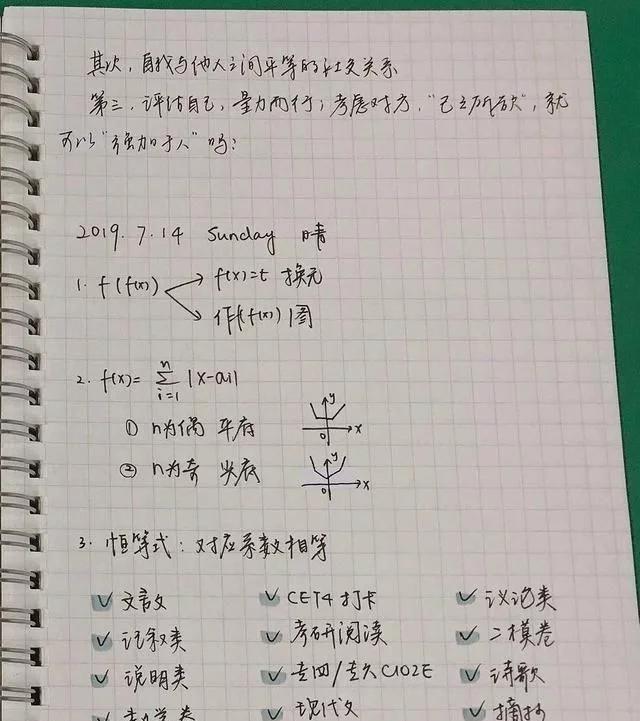 其次，自我与他人之间平等的社交关系
第三，评估自己，量力而行；考虑对方，"己之所欲"，就
可以"强加于人"吗？
2019.7.14 Sunday 晴
1. f(f(x)) f(x)=t 换元
作f(f(x))图
2. f(x)= n∑i=1 |x-ai|
① n为偶 平底 y 0 x
② n为奇 尖底 y 0 x
3. 恒等式：对应系数相等
✓ 文言文 ✓ CET4打卡 ✓ 议论类
✓ 记叙类 ✓ 考研阅读 ✓ 二模卷
✓ 说明类 ✓ 专四/专八 ✓ 诗歌
现代文 摘抄